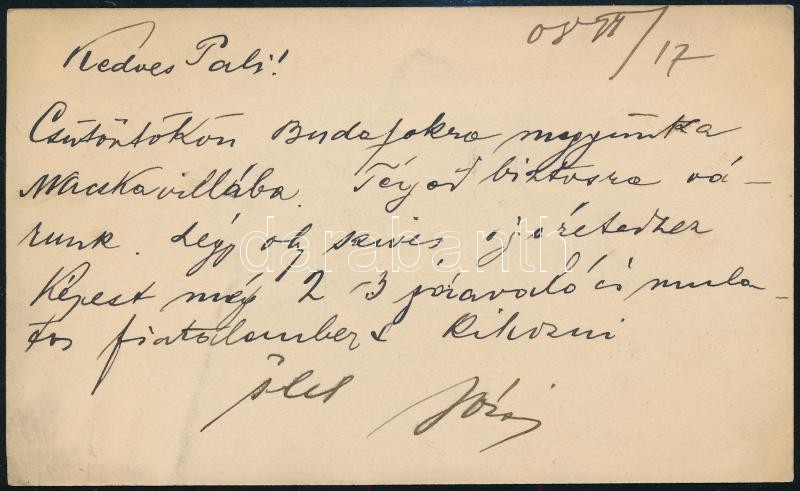 08 VI/17
Kedves Pali!
Csütörtökön Budafokra megyünk a
Macskavillába. Téged biztosra vá-
runk. Légy oly szives igéretedhez
képest még 2-3 jóravaló és mula-
tos fiatalembert kihozni
ölel Józsi
darabanth